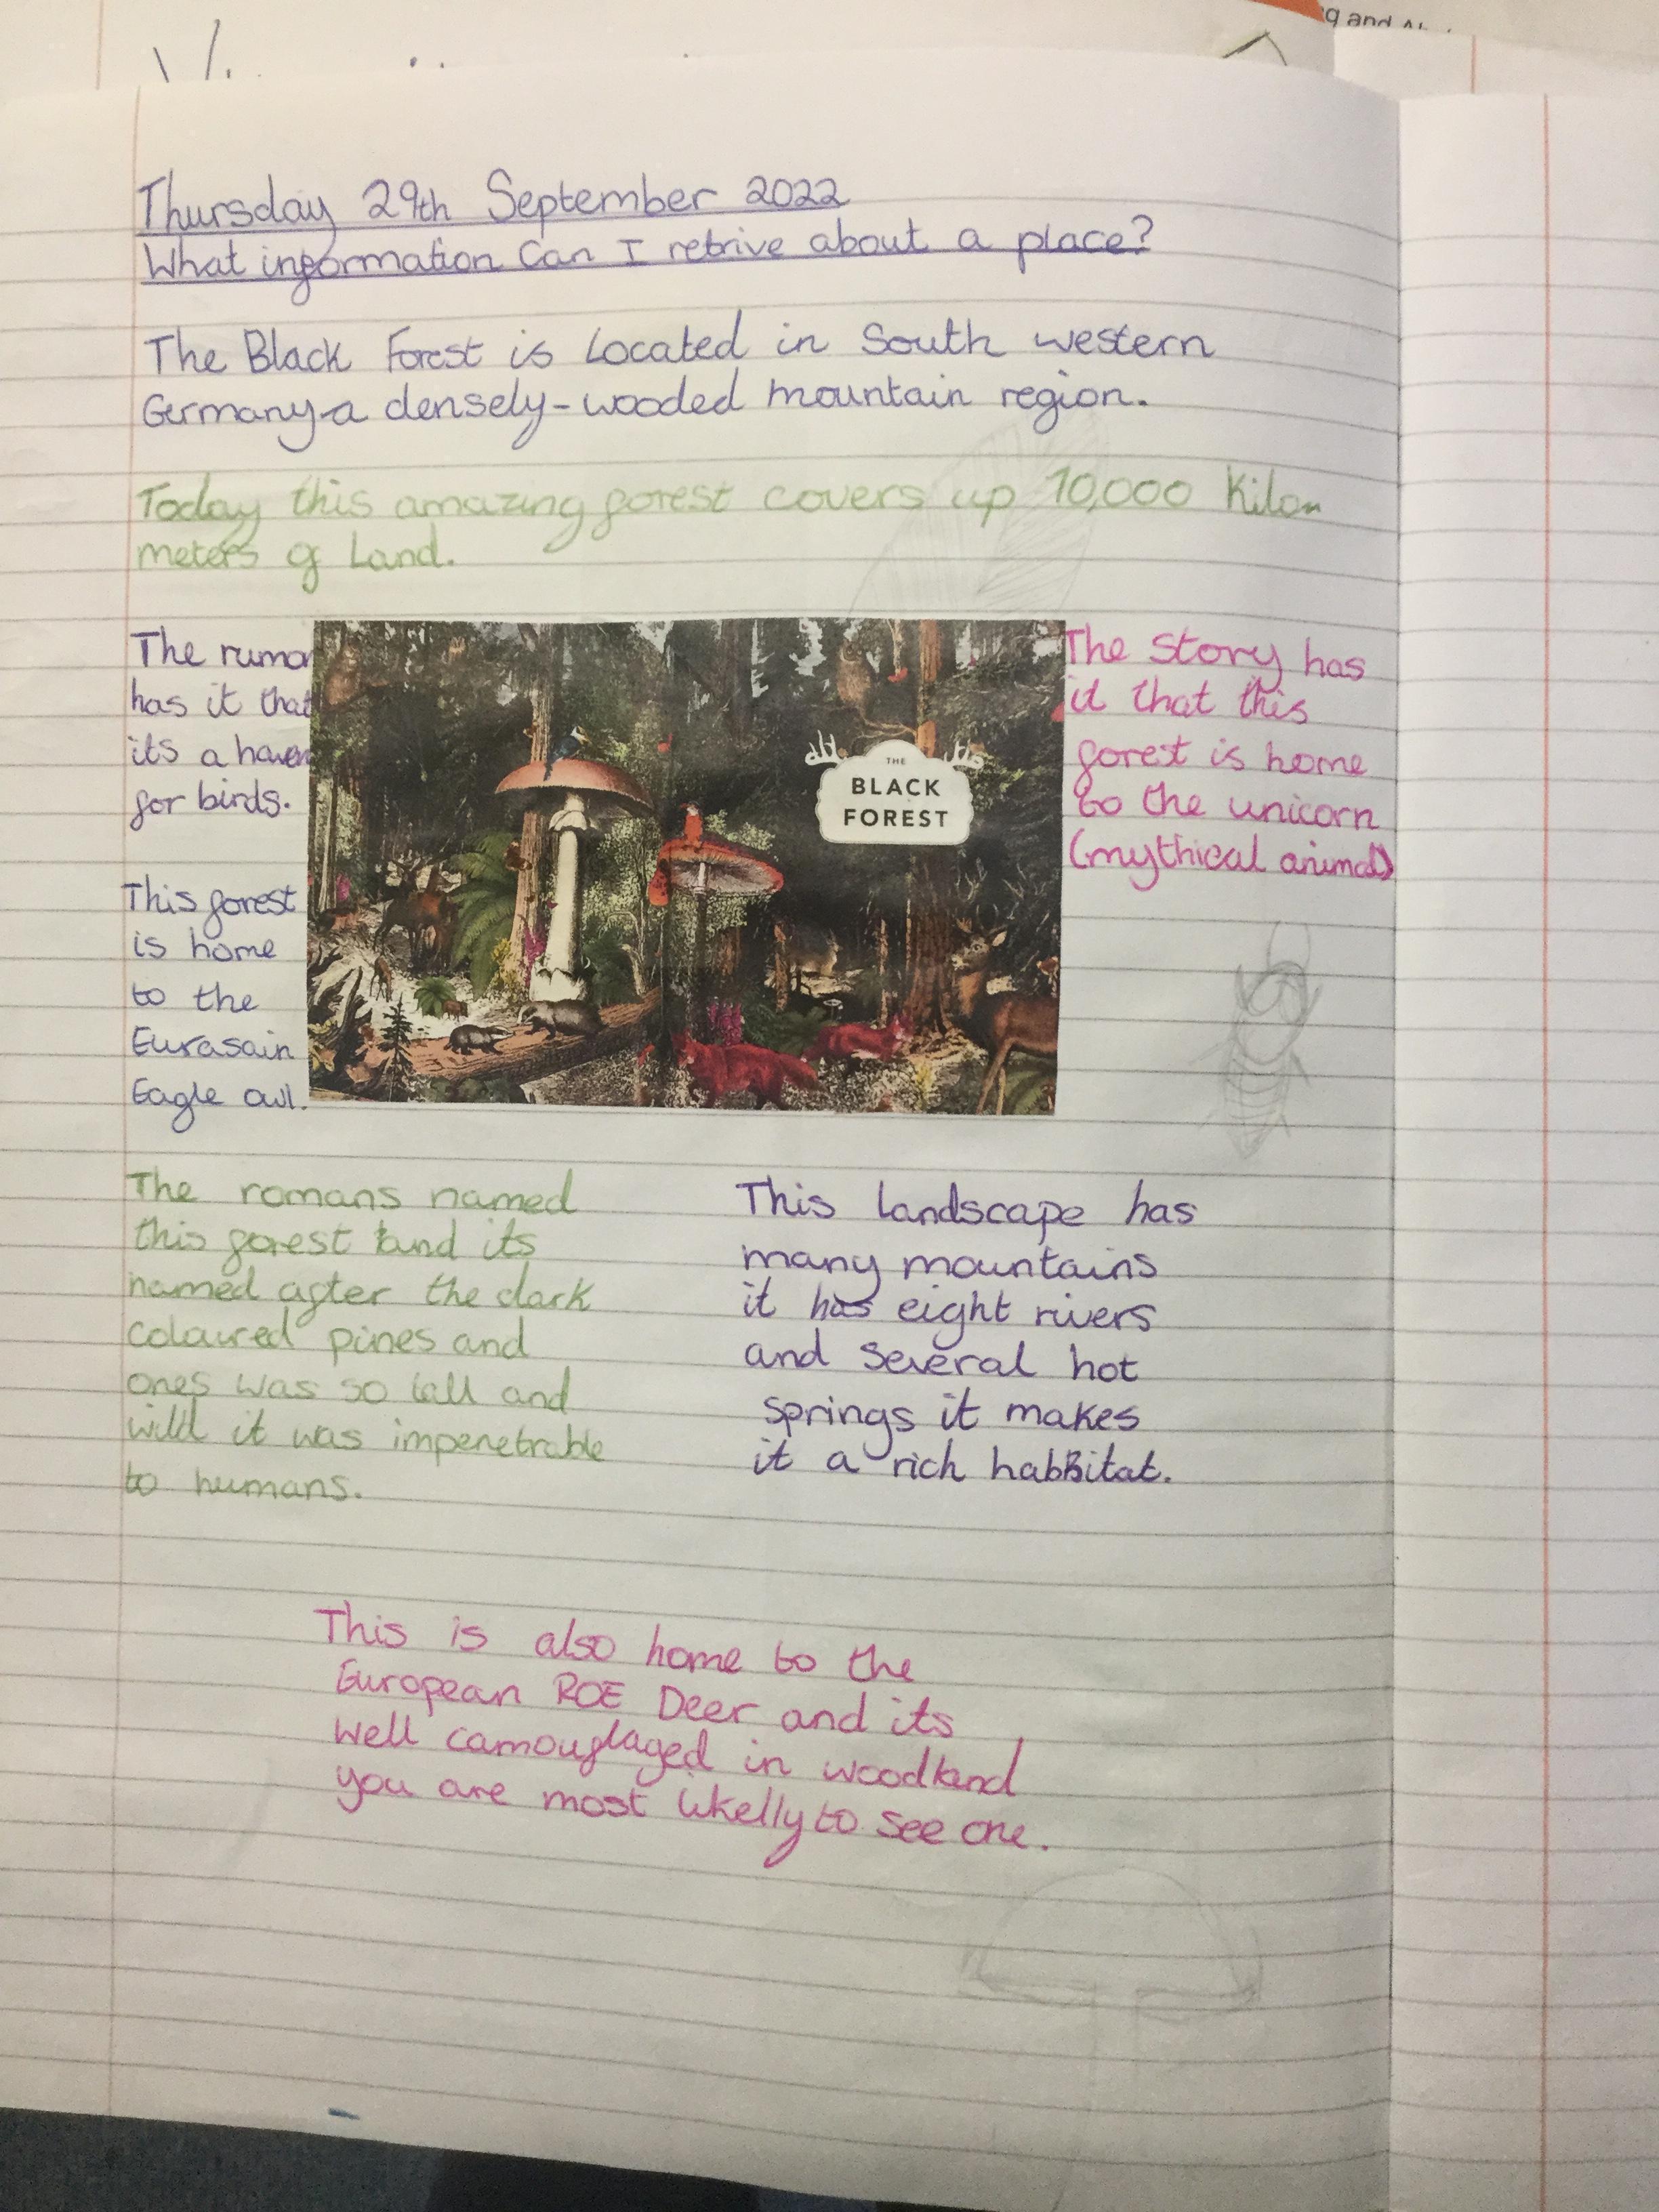 g and
Thursday 29th September 2022
What information Can I retrive about a place?
The Black Forest is Located in South western
Germany-a densely-wooded mountain region.
Today this amazing forest covers up 10,000 Kilom
meters of Land.
The rumor
has it that
its a haven
for birds.
This forest
is home
to the
Eurasain
Eagle owl.
THE
BLACK
FOREST
The Story has
it that this
forest is home
to the unicorn
(mythical animal)
The romans named
this forest and its
named after the dark
coloured pines and
ones was so tall and
wild it was impenetrable
to humans.
This landscape has
many mountains
it has eight rivers
and several hot
springs it makes
it a rich habbitat.
This is also home to the
European ROE Deer and its
well camouflaged in woodland
you are most likelly to see one.